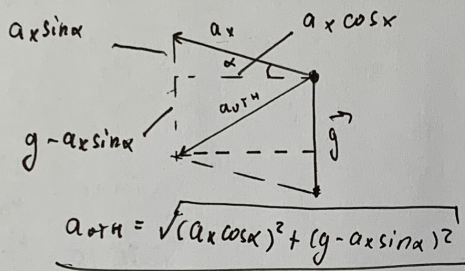 aₓ sinα
aₓ
aₓ cosα
α
aотн
g - aₓ sinα
g⃗
aотн = √((aₓ cosα)² + (g - aₓ sinα)²)